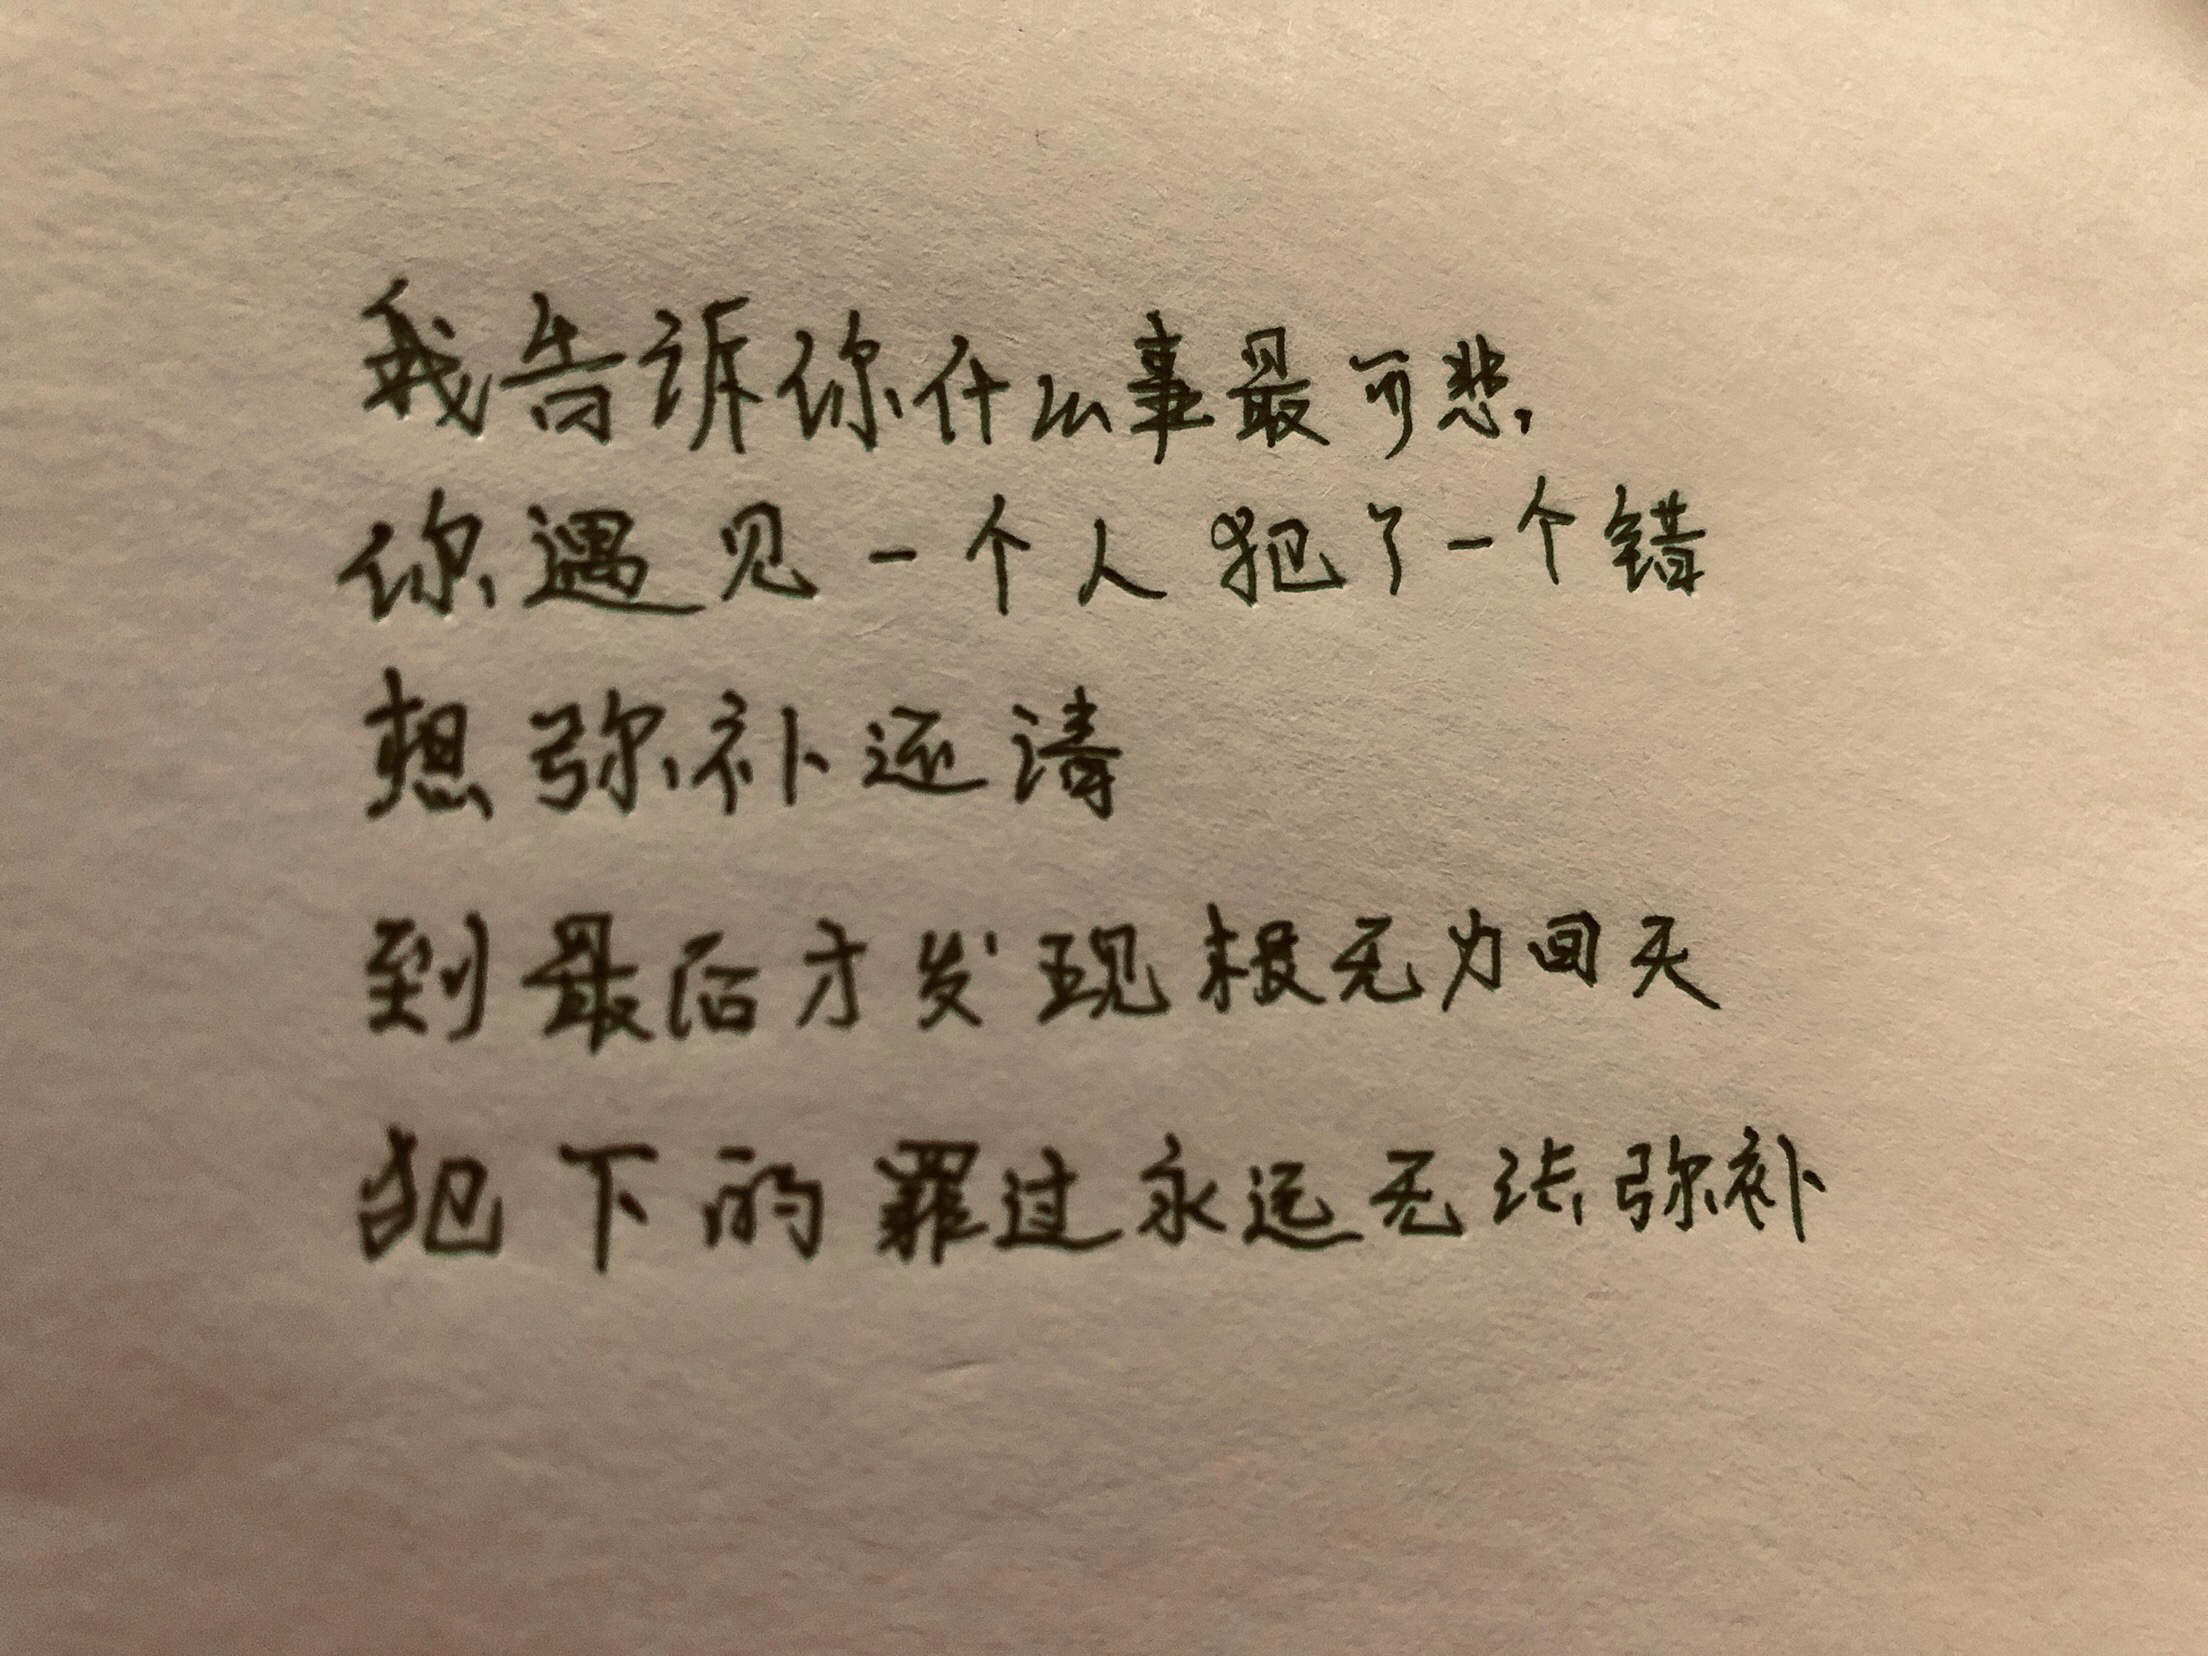 我告诉你什么事最可悲,
你遇见一个人犯了一个错
想弥补还清
到最后才发现根无力回天
犯下的罪过永远无法弥补